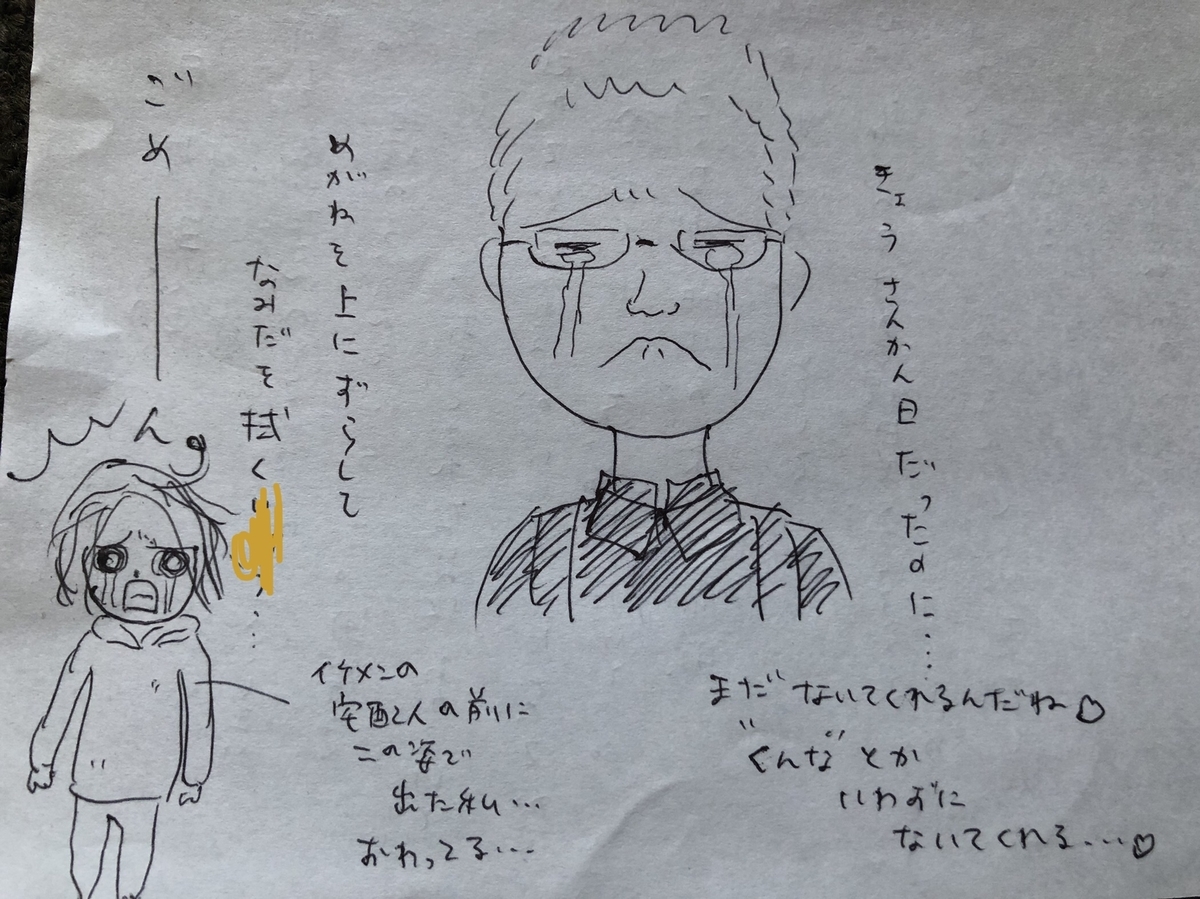 きょうさんかん日だったのに……
まだないてくれるんだね♡
"くんな"とか
いわずに
ないてくれる…♡
めがねを上にずらして
なみだを拭く
ごめーーん。
イケメンの
宅配2人の前に
この姿で
出た私…
おわってる…